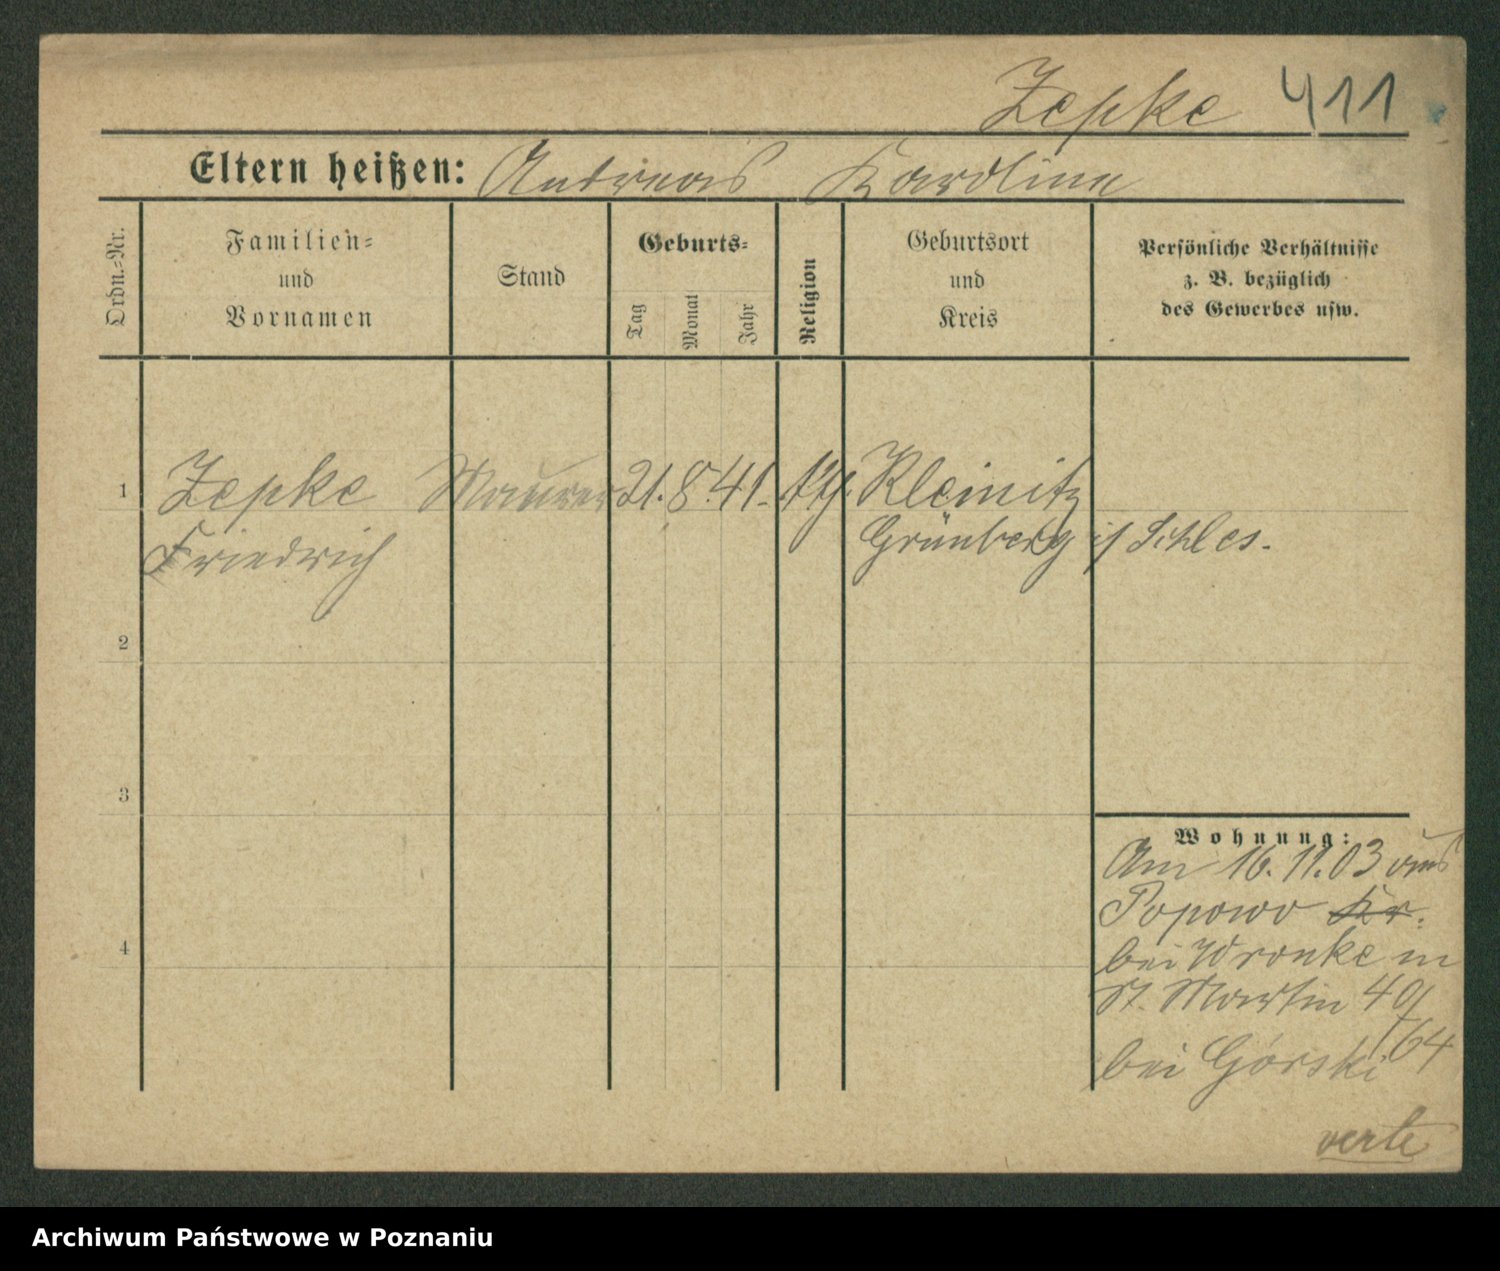 Zepke 411
Eltern heißen: Andreas Karoline
Ordn.-Nr.
Familien-
und
Vornamen
Stand
Geburts-
Tag
Monat
Jahr
Religion
Geburtsort
und
Kreis
Persönliche Verhältnisse
z. B. bezüglich
des Gewerbes usw.
1 Zepke Maurer 21. 8. 41. Kleinitz
Friedrich Grünberg i/ Schles.
2
3
4
Wohnung:
Am 16.11.03 aus
Popowo Kr.
bei Wronke in
St. Martin 40/
64
bei Górski
verte
Archiwum Państwowe w Poznaniu